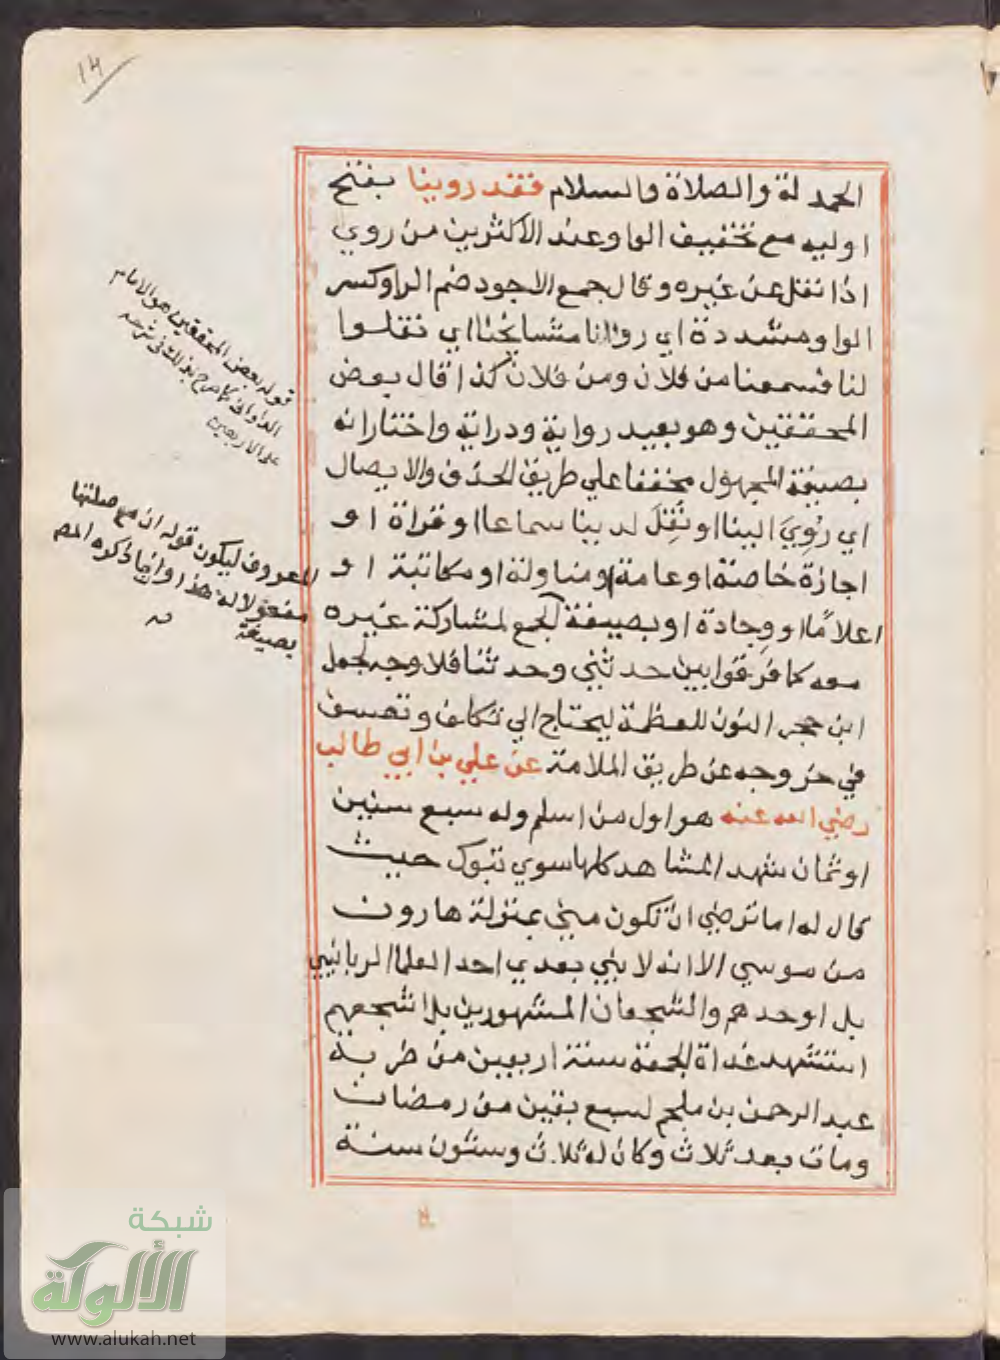 ١٤
الحمد لة والصلاة والسلام فقد روينا بفتح
اوليه مع تخفيف الواو عند الاكثرين من روي
اذا نقل عن غيره وقال جمع الاجود ضم الرا وكسر
الواو مشددة اي روانا مشايخنا اي نقلوا
لنا فسمعنا من فلان ومن فلان كذا قال بعض
المحققين وهو بعيد رواية ودراية واختار انه
بصيغة المجهول مخففا علي طريق الحذف والايصال
اي رُوِيَ الينا او نُقِلَ لدينا سماعا او قراة او
اجازة خاصة او عامة او مناولة او مكاتبة او
اعلامًا او وِجادة او بصيغة الجمع لمشاركة غيره
معه كما فرقوا بين حدثني وحدثنا فلا وجه لجعل
ابن حجر النون للعظمة ليحتاج الي تكلف وتعسف
في خروجه عن طريق الملامة عن علي بن ابي طالب
رضي الله عنه هو اول من اسلم وله سبع سنين
او ثمان شهد المشاهد كلها سوي تبوك حيث
قال له اما ترضي ان تكون مني بمنزلة هارون
من موسي الا انه لا نبي بعدي احد العلما الربانيي
بل اوحدهم والشجعان المشهورين بل اشجعهم
استشهد غداة الجمعة سنة اربعين من ضربة
عبد الرحمن بن ملجم لسبع بقين من رمضان
ومات بعد ثلاث وكان له ثلاث وستون سنة
قوله بعض المحققين هو الامام
الدواني كما صرح بذلك في شرحه
علي الاربعين
للمعروف ليكون قوله ان مع صلتها
مفعولا له هذا وانما ذكره المص
بصيغة
شبكة
الألوكة
www.alukah.net